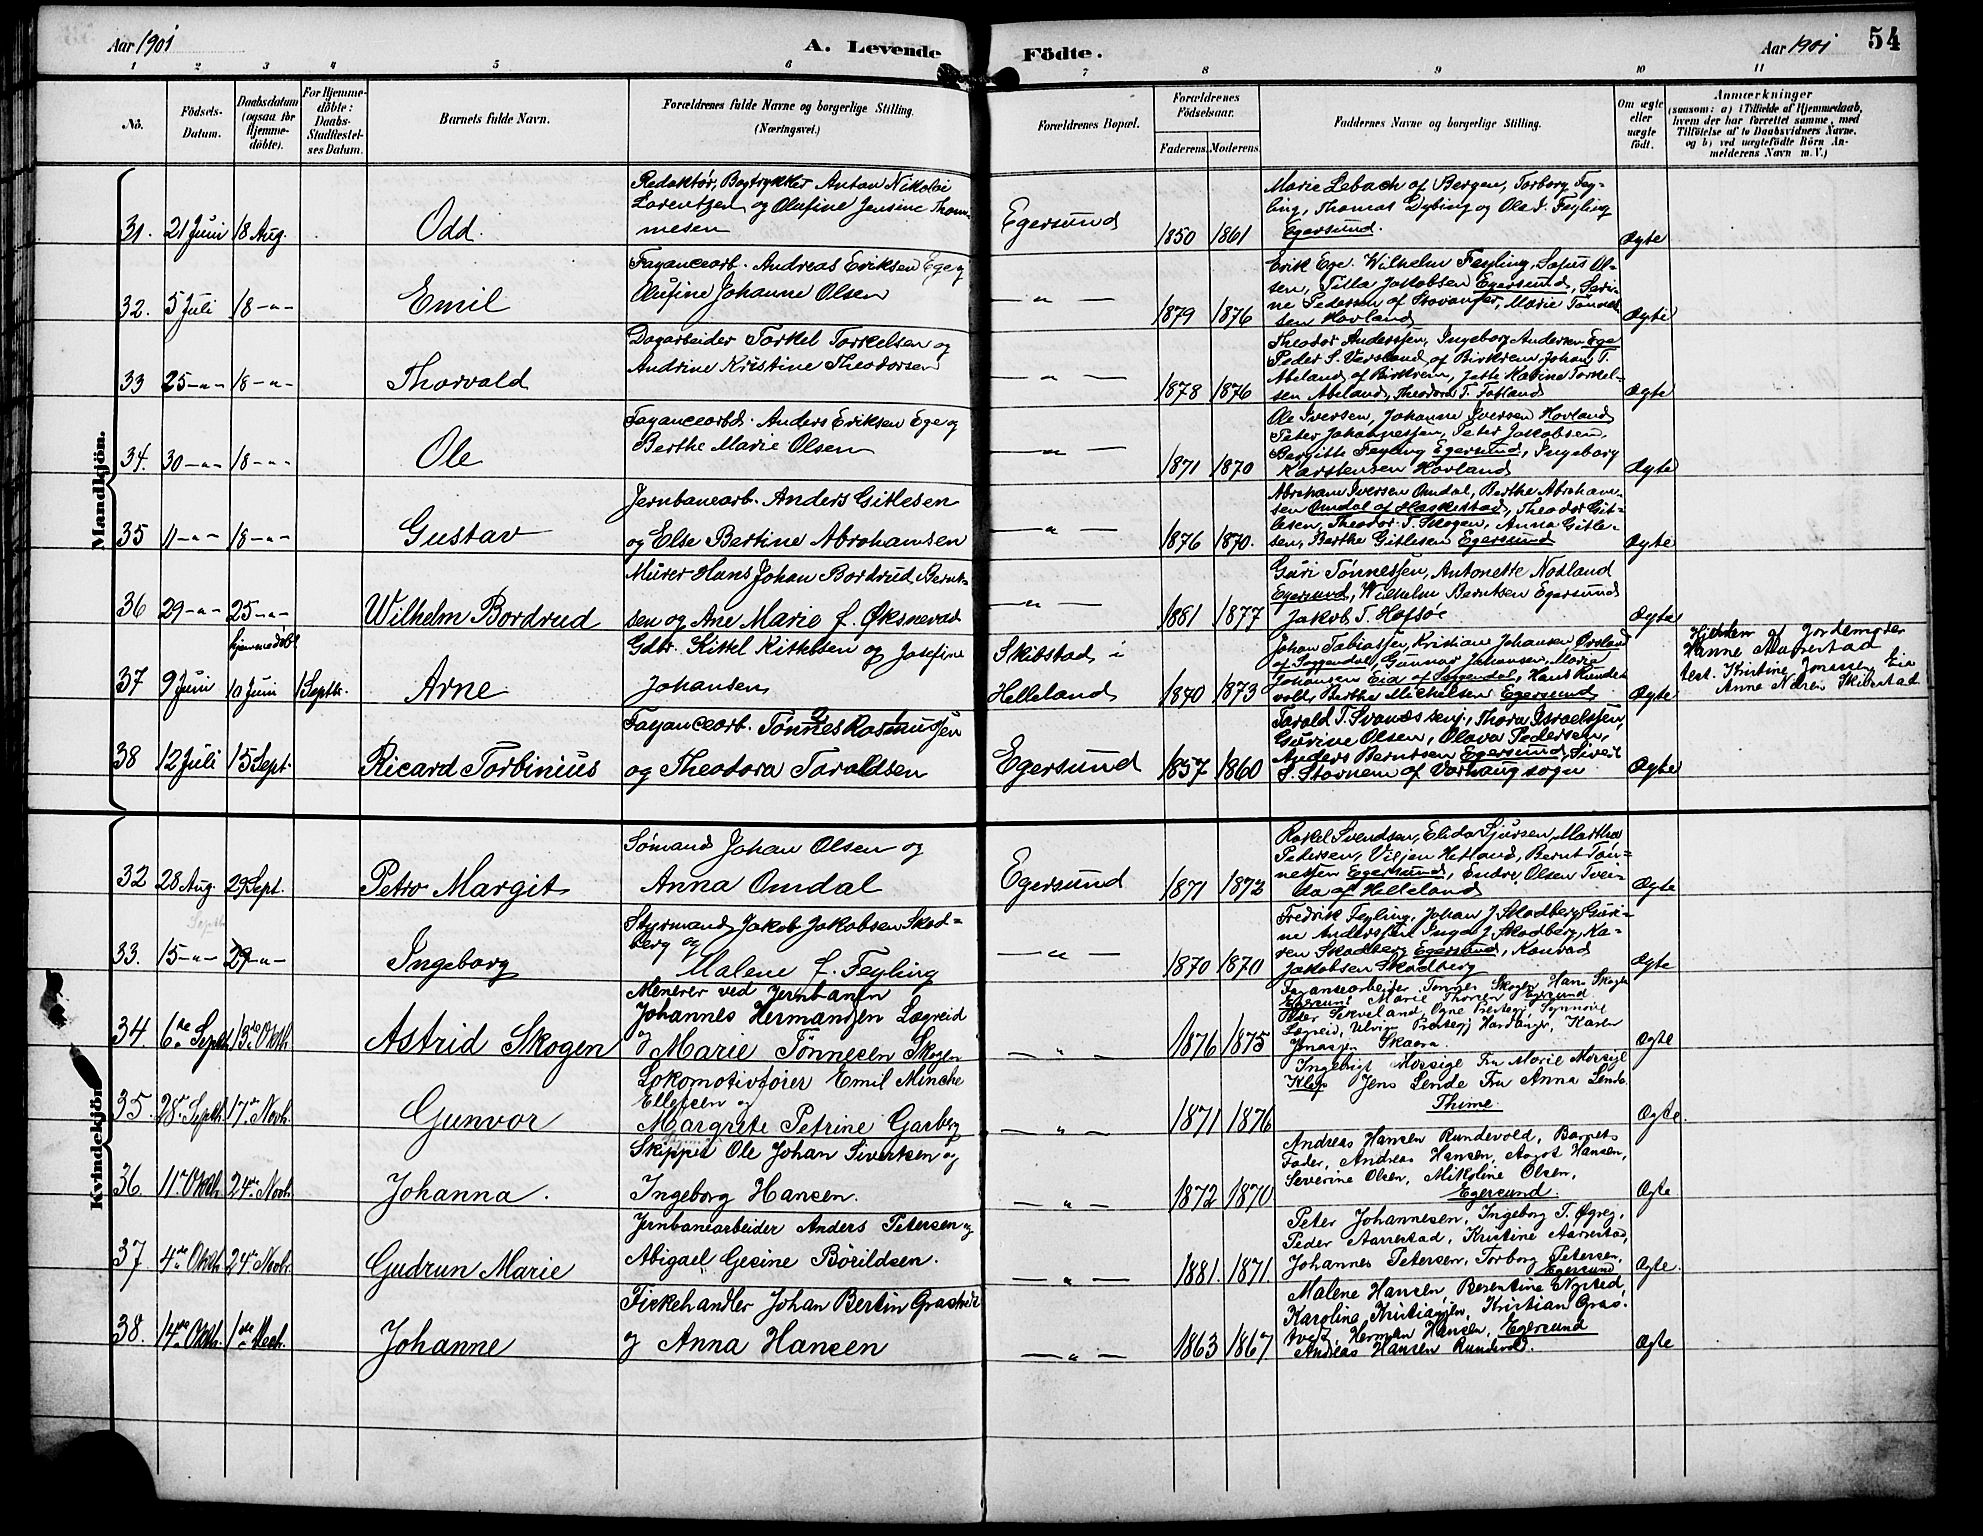 Aar 1901
A. Levende Födte.
Aar 1901
54
1 2 3 4 5 6 7 8 9 10 11
No.
Födsels-
Datum.
Daabsdatum
(ogsaa for
Hjemme-
döbte).
For Hjemme-
döbte:
Daabs-
Stadfæstel-
ses Datum.
Barnets fulde Navn.
Forældrenes fulde Navne og borgerlige Stilling.
(Næringsvei.)
Forældrenes Bopæl.
Forældrenes
Födselsaar.
Faderens. Moderens.
Faddernes Navne og borgerlige Stilling.
Om ægte
eller
uægte
födt.
Anmærkninger
(saasom: a) i Tilfælde af Hjemmedaab,
hvem der har forrettet samme, med
Tilföielse af to Daabsvidners Navne,
og b) ved uægtefödte Börn An-
melderens Navn m. V.)
Mandkjön.
31. 21 Juni 18 Aug. Odd.
Redaktør, Bogtrykker Anton Nikolai
Lorentzen og Olufine Jensine Thom-
mesen
Egersund 1850 1861
Marie Lebach af Bergen, Torborg Fey-
ling, Thomas Dybing og Ole J. Feyling
Egersund.
Ægte
32. 5 Juli 18 -"- Emil
Fayancearb. Andreas Eriksen Ege og
Olufine Johanne Olsen
-"- 1879 1876
Erik Ege. Wilhelm Feyling, Sofus Ol-
sen, Tilla Jakobsen Egersund, Seri-
ne Pedersen af Stavanger, Marie Tønnes-
sen Hovland
Ægte
33 25 -"- 18 -"- Thorvald
Dagarbeider Torkel Torkelsen og
Andrine Kristine Theodorsen
-"- 1878 1876
Theodor Anderssen, Ingeborg Andersen Ege
Peder S. Versland af Birkrem, Johan T.
Abeland af Birkrem, Jette Karine Torkel-
sen Abeland, Theodora T. Fotland
Ægte
34. 30 -"- 18 -"- Ole
Fayancearbd. Anders Eriksen Ege og
Berthe Marie Olsen
-"- 1871 1870
Ole Iversen, Johanne Iversen Hovland
Peter Johannessen, Peter Jakobsen,
Bergitte Feyling Egersund, Ingeborg
Karstensen Hovland
Ægte
35 11 -"- 18 -"- Gustav
Jernbanearb. Anders Gitlesen
og Else Bertine Abrahamsen
-"- 1876 1870.
Abraham Iversen Omdal, Berthe Abraham-
sen Omdal af Heskestad, Theodor Git-
lesen, Theodor T. Skogen, Anna Gitle-
sen, Berthe Gitlesen Egersund
Ægte
36 29 -"- 25 -"- Wilhelm Bordrud
Murer Hans Johan Bordrud Bernt-
sen og Ane Marie f. Øksnevad
-"- 1881 1877
Guri Tønnessen, Antonette Notland
Egersund, Wilhelm Berntsen Egersund
Jakob T. Hofsøe
Ægte
hjemmedøbt
37 9 Juni 10 Juni 1 Septb. Arne
Gdbr. Kittel Kittelsen og Josefine
Johansen
Skibstad i
Helleland
1840 1873
Johan Tobiassen, Kristiane Johansen Ørsland
af Soggendal, Gunnar Johansen, Marie
Johansen Eia af Soggendal, Hans Runde-
vold, Berthe Michelsen Egersund
Ægte
Hjdøbn. af Jordemoder
Hanne Aarrestad
test. Kristine Jonassen Eia
Anne Nilsen Skibstad
38 12 Juli 15 Sept. Ricard Torbinius
Fayancearb. Tønnes Rasmussen
og Theodora Taroldsen
Egersund 1857 1860
Tarald T. Svanes senj., Thora Israelssen,
Gurine Olsen, Olava Pedersen,
Anders Berntsen Egersund, Sivert
S. Stovnem af Varhaug sogn
Ægte
Kvindekjön.
32 28 Aug. 29 Sept. Petra Margit
Sømand Johan Olsen og
Anna Omdal
Egersund 1871 1872
Rakel Svendsen, Elida Sjursen, Martha
Pedersen, Viljen Hetland, Bernt Tøn-
nessen Egersund, Endre Olsen Tvei-
da af Helleland
Ægte
Septb
33. 15 -"- 29 -"- Ingeborg
Styrmand Jakob Jakobsen Skad-
berg og
Malene f. Feyling
-"- 1870 1870
Fredrik Feyling, Johan J. Skadberg, Guri-
ne Anderssen, Inga J. Skadberg, Ka-
ren Skadberg Egersund, Konrad
Jakobsen Skadberg
Ægte
34. 6te Septb 13de Oktb. Astrid Skogen
Menerer ved Jernbanen
Johannes Hermansen Lægreid
og Marie Tønnesen Skogen
-"- 1876 1875
Fayansearbeider Tønnes Skogen Hans Skogen
Egersund Marie Thorsen Egersund
Peder Lekveland, Ogne Prestegj. Synnøve
Lægreid, Ulvig Prestegj Hardanger, Karen
Jonasen Skaara.
Ægte
35. 28. Septb. 17de Novb. Gunvor
Lokomotivfører Emil Minche
Ellefsen og
Margrete Petrine Garborg
-"- 1871 1876
Ingebrigt Morsige Fru Marie Morsige
Klep Jens Lende Fru Anna Lende
Thime.
Ægte.
36. 11te Oktb. 24de Novb. Johanna.
Skipper Ole Johan Sivertsen og
Ingeborg Hansen.
-"- 1872 1870
Andreas Hansen Rundevold, Barnets
Fader, Andreas Hansen, Aagot Hansen,
Severine Olsen, Mikoline Olsen,
Egersund.
Ægte
37. 4de Oktb. 24de Novb. Gudrun Marie
Jernbanearbeider Anders Petersen og
Abigael Gesine Börildsen.
-"- 1881. 1871.
Peter Johannesen, Ingeborg T. Øgrey,
Peder Aarrestad, Kristine Aarrestad,
Johannes Petersen, Torborg Petersen,
Egersund
Ægte.
38. 14de Oktb. 1ste Decb. Johanne
Fiskehandler Johan Bertin Grastveit
og Anna Hansen
-"- 1863 1867
Malene Hansen, Berentine Nysted,
Karoline Kristiansen, Kristian Gras-
tveit, Herman Hansen, Egersund
Andreas Hansen Rundevold.
Ægte